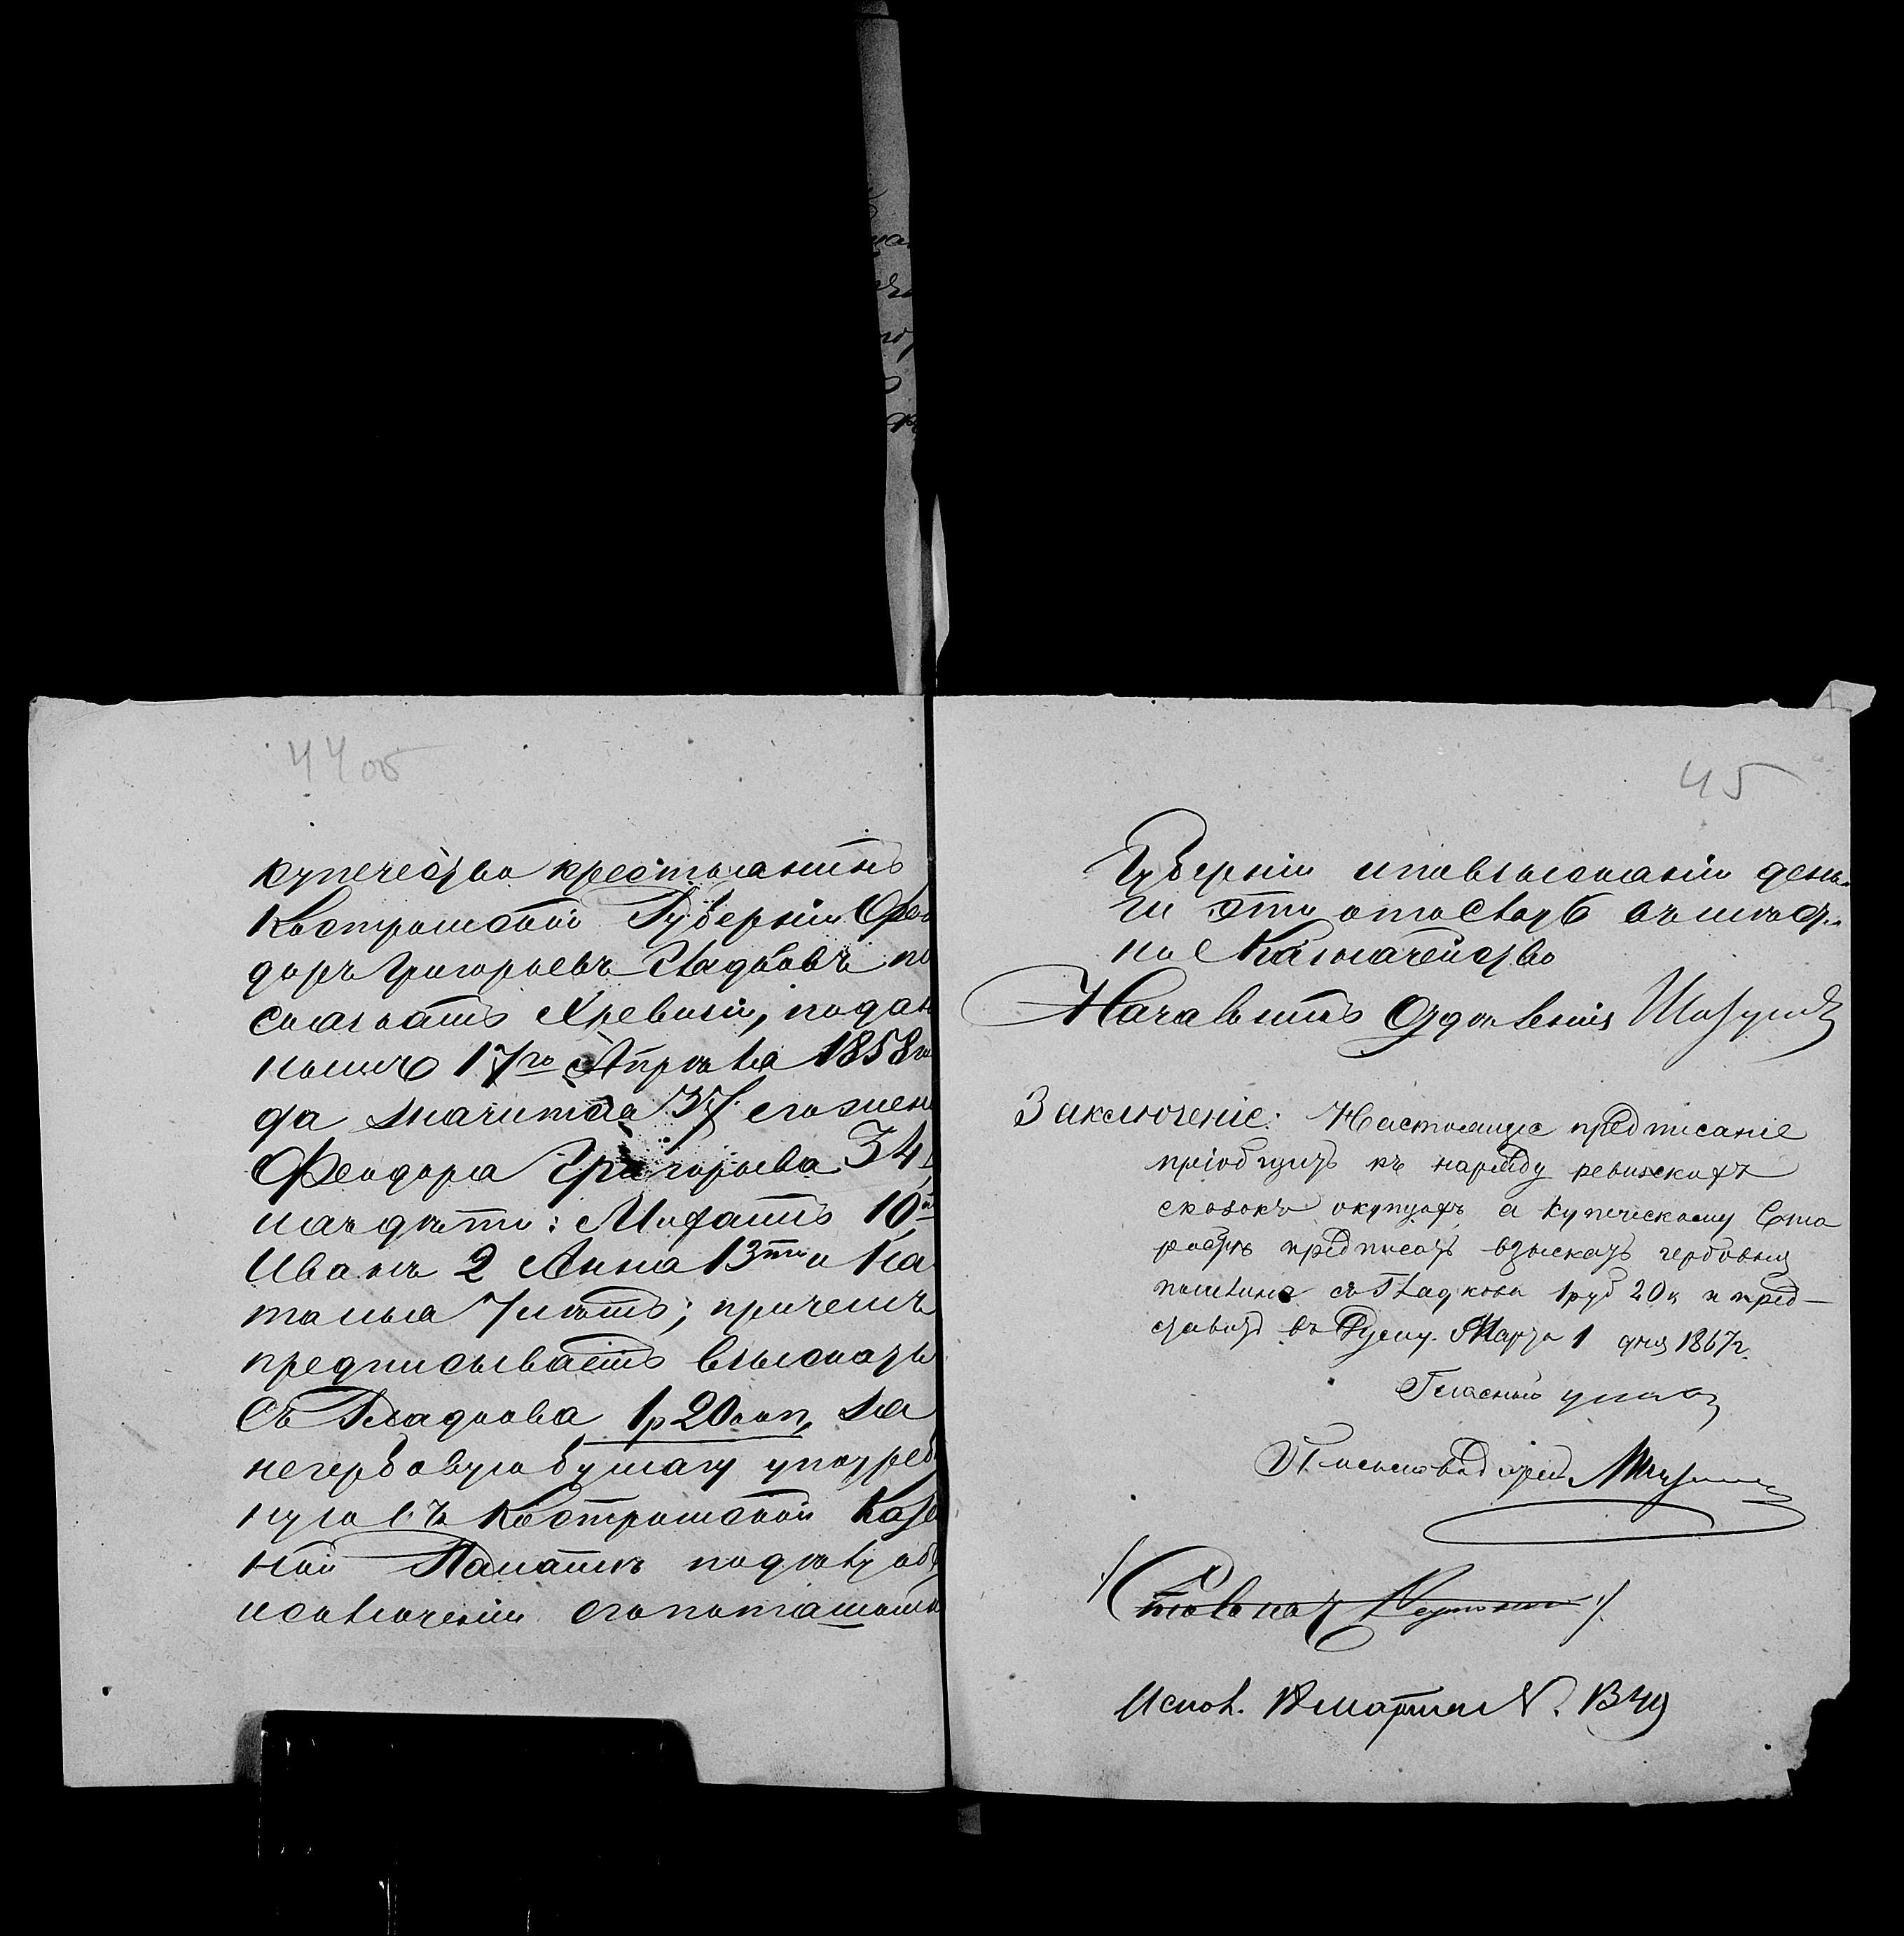 44 об
купечество крестьянинъ
Костромской Губерніи Ѳео
доръ Григорьевъ Гладковъ по
сказкамъ X ревизіи, подан
нымъ 17го Апрѣля 1858 го
да значится 37 его жена
Феодора Григорьева 34,
ихъ дѣти: Михаилъ 10,
Иванъ 2 Анна 13ти и На
талья 7 лѣтъ; причемъ
предписываетъ взыскать
съ Гладкова 1р 20 коп, за
негербовую бумагу употреб
ную въ Костромской Казен
ной Палатѣ по дѣлу объ
исключеніи его по тамошн
45
Губерніи и по взысканіи день
ги эти отослать въ мѣст
но Казначейство
Начальникъ Отдѣленія
Заключеніе: Настоящее предписаніе
пріобщить къ наряду ревизскихъ
сказокъ о купцахъ, а Купеческому Ста
ростѣ предписать взыскать гербовыя
пошлины съ Гладкова 1 руб 20 к и пред-
ставить въ Думу. Марта 1 дня 1867 г.
Гласный
Письмоводитель
Испол. Марта N.